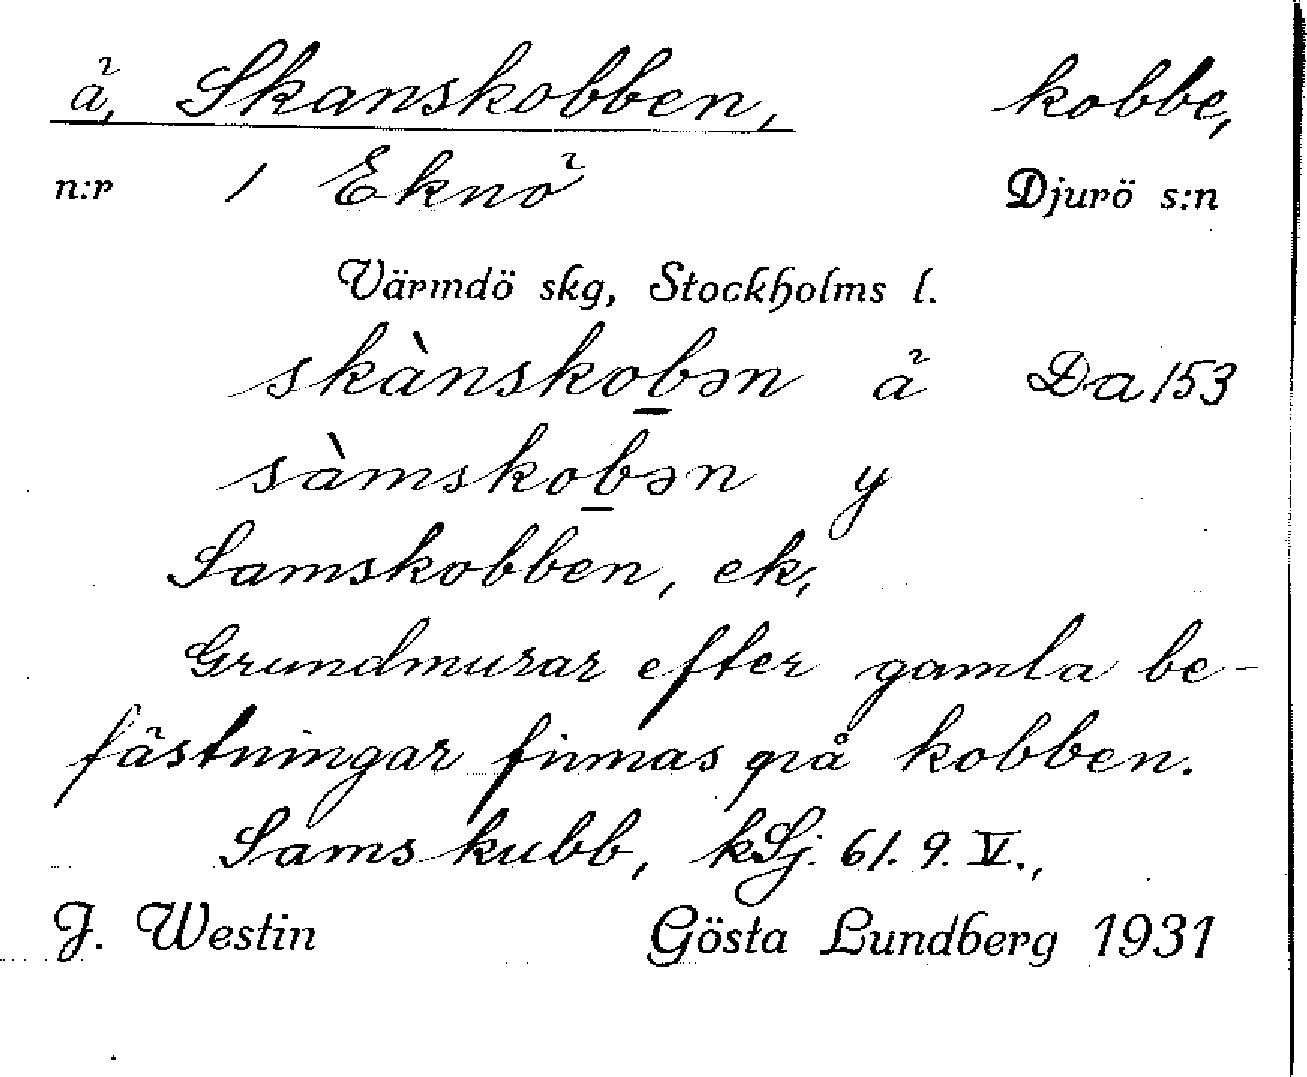 ä, Skanskobben, kobbe,
n:r 1 Eknö Djurö s:n
Värmdö skg, Stockholms l.
skànskob̲ən ä Da 153
sàmskob̲ən y
Samskobben, ek,
Grundmurar efter gamla be-
fästningar finnas på kobben.
Sams kubb, kSj. 61. 9. V.,
J. Westin Gösta Lundberg 1931